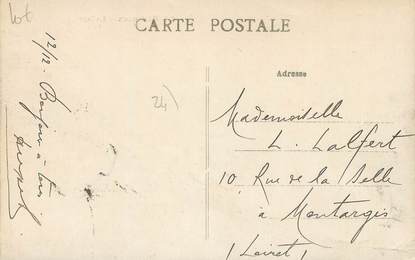 lot
CARTE POSTALE
Adresse
12/12 - Bonjour à tous
24)
Mademoiselle
L. Lalfert
10 Rue de la Selle
à Montargis
(Loiret)